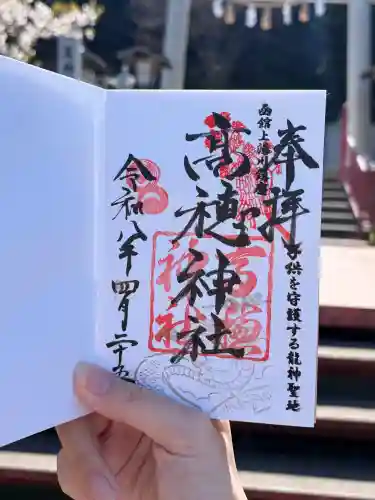 函館上湯川鎮座
奉拝
子供を守護する龍神聖地
高穂神社
高穂神社
令和八年四月二十五